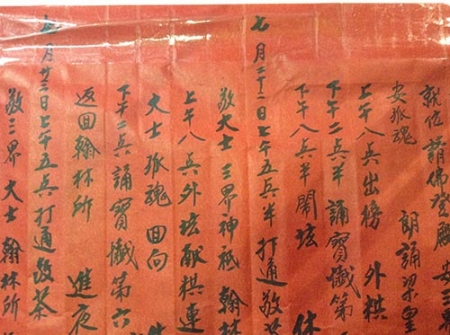 就位請佛登殿 安三界
安孤魂 朗誦梁皇
上午八奌出榜 外栱
下午二奌半 誦寶懺第
下午八奌半 開坛
七月二十二日上午五奌半 打通 敬茶
敬大士 三界神祇 翰林
上午八奌外坛献栱 連
大士 孤魂 回向
下午二奌誦寶懺第六
返回翰林所 進夜
七月廿三日上午五奌打通 敬茶
敬三界 大士 翰林所